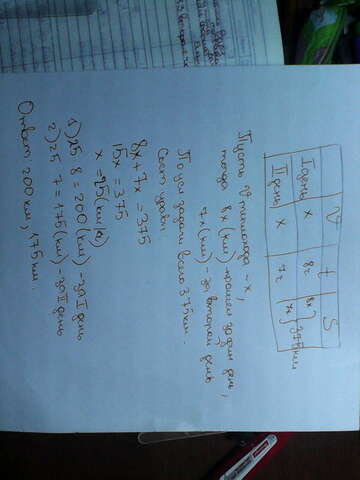 V t S
I день x 8ч 8x } 375 км
II день x 7ч 7x
Пусть V теплохода – x,
тогда 8x (км) – прошел за один день,
7x (км) – за второй день
По усл задачи всего 375 км.
Сост. уравн:
8x + 7x = 375
15x = 375
x = 25 (км/ч)
1) 25 8 = 200 (км) – за I день
2) 25 7 = 175 (км) – за II день
Ответ: 200 км, 175 км.